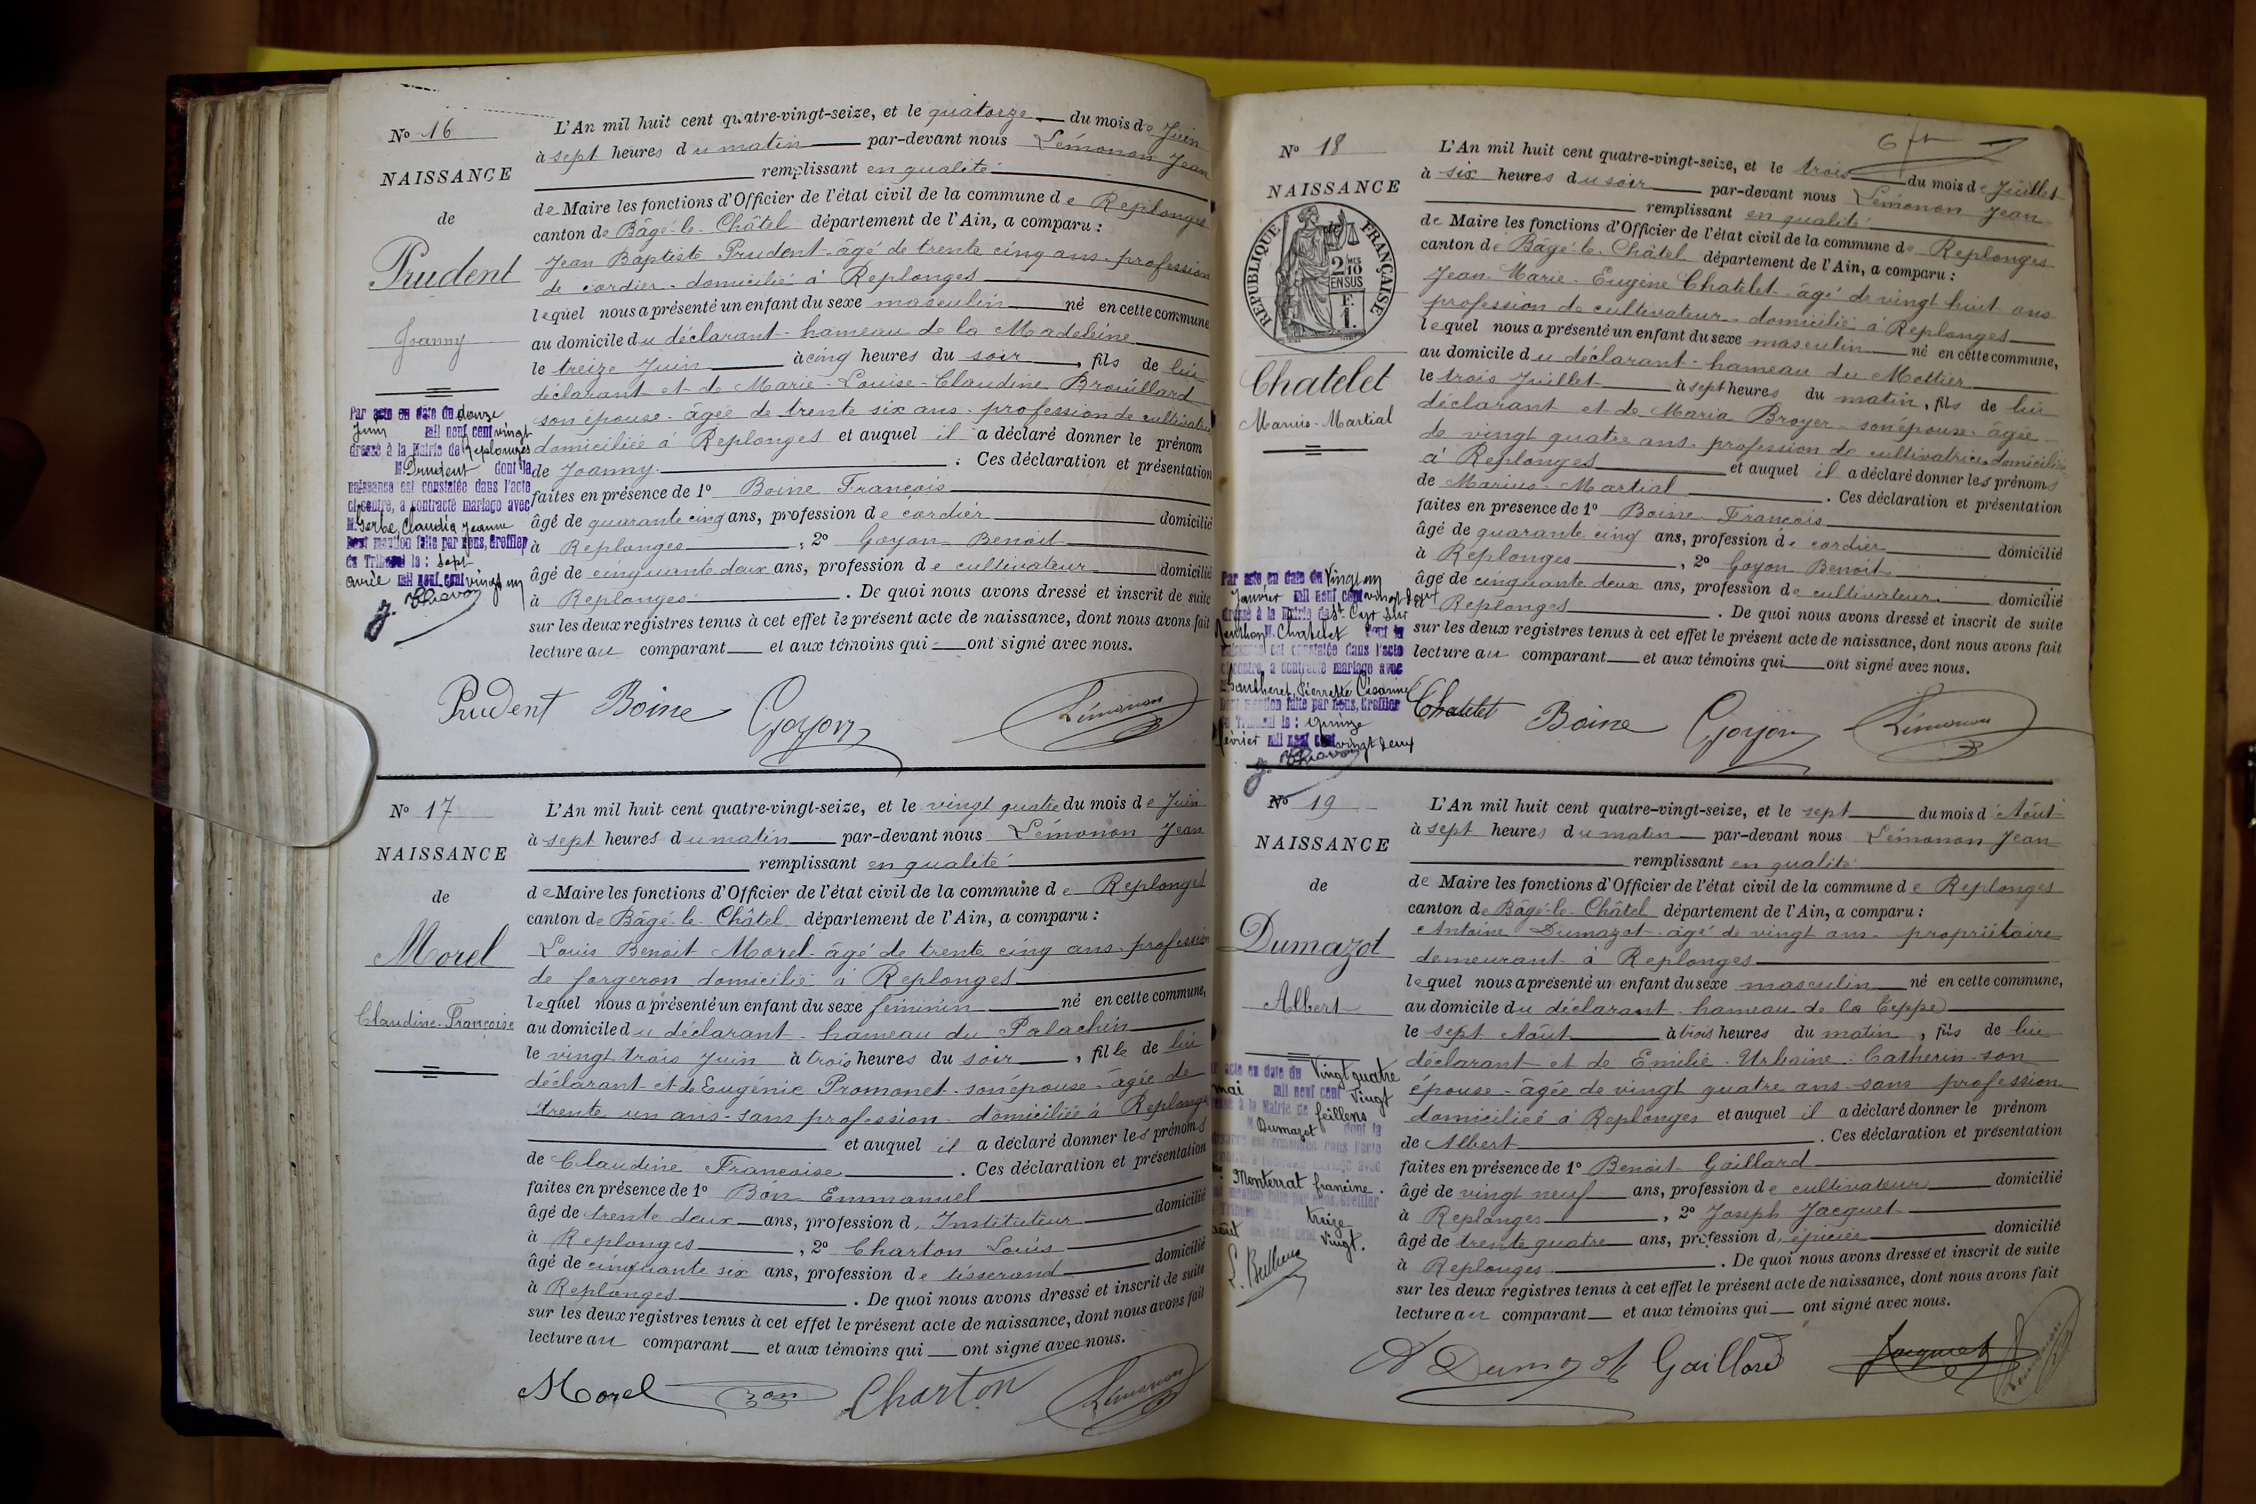 N° 16
NAISSANCE
de
Prudent
Joanny
Par acte en date du douze
Juin mil neuf cent vingt
dressé à la Mairie de Replonges
M. Prudent dont la
naissance est constatée dans l'acte
ci-contre, a contracté mariage avec
M. Gerbe, Claudia Jeanne
Dont mention faite par nous, Greffier
du Tribunal le : sept
avril mil neuf cent vingt un
L'An mil huit cent quatre-vingt-seize, et le quatorze du mois de Juin
à sept heures du matin par-devant nous Lémonon Jean
remplissant en qualité
de Maire les fonctions d'Officier de l'état civil de la commune de Replonges
canton de Bâgé-le-Châtel département de l'Ain, a comparu :
Jean Baptiste Prudent - âgé de trente cinq ans - profession
de cordier - domicilié à Replonges
lequel nous a présenté un enfant du sexe masculin né en cette commune
au domicile du déclarant - hameau de la Madeleine
le treize Juin à cinq heures du soir, fils de lui
déclarant et de Marie-Louise-Claudine Brouillard
son épouse - âgée de trente six ans - profession de cultivatrice
domiciliée à Replonges et auquel il a déclaré donner le prénom
de Joanny. Ces déclaration et présentation
faites en présence de 1° Boine François
âgé de quarante cinq ans, profession de cordier domicilié
à Replonges, 2° Goyon Benoit
âgé de cinquante deux ans, profession de cultivateur domicilié
à Replonges. De quoi nous avons dressé et inscrit de suite
sur les deux registres tenus à cet effet le présent acte de naissance, dont nous avons fait
lecture au comparant et aux témoins qui ont signé avec nous.
Prudent Boine Goyon Lémonon
N° 17
NAISSANCE
de
Morel
Claudine-Françoise
L'An mil huit cent quatre-vingt-seize, et le vingt quatre du mois de Juin
à sept heures du matin par-devant nous Lémonon Jean
remplissant en qualité
de Maire les fonctions d'Officier de l'état civil de la commune de Replonges
canton de Bâgé-le-Châtel département de l'Ain, a comparu :
Louis Benoit Morel - âgé de trente cinq ans - profession
de forgeron domicilié à Replonges
lequel nous a présenté un enfant du sexe féminin né en cette commune,
au domicile du déclarant - hameau du Palachin
le vingt trois Juin à trois heures du soir, fille de lui
déclarant et de Eugénie Promonet - son épouse - âgée de
trente un ans - sans profession - domiciliée à Replonges
et auquel il a déclaré donner les prénoms
de Claudine Françoise. Ces déclaration et présentation
faites en présence de 1° Bon Emmanuel
âgé de trente deux ans, profession d'Instituteur domicilié
à Replonges, 2° Charton Louis
âgé de cinquante six ans, profession de tisserand domicilié
à Replonges. De quoi nous avons dressé et inscrit de suite
sur les deux registres tenus à cet effet le présent acte de naissance, dont nous avons fait
lecture au comparant et aux témoins qui ont signé avec nous.
Morel Bon Charton Lémonon
N° 18
NAISSANCE
de
RÉPUBLIQUE FRANÇAISE
2/10
EN SUS
F.
1.
Chatelet
Marius-Martial
Par acte en date du Vingt un
Janvier mil neuf cent vingt deux
dressé à la Mairie de St Cyr sur
Menthon M. Chatelet dont la
naissance est constatée dans l'acte
ci-contre, a contracté mariage avec
Dont mention faite par nous, Greffier
du Tribunal le : quinze
février mil neuf cent vingt deux
L'An mil huit cent quatre-vingt-seize, et le trois du mois de Juillet
à six heures du soir par-devant nous Lémonon Jean
remplissant en qualité
de Maire les fonctions d'Officier de l'état civil de la commune de Replonges
canton de Bâgé-le-Châtel département de l'Ain, a comparu :
Jean-Marie-Eugène Chatelet - âgé de vingt huit ans
profession de cultivateur - domicilié à Replonges
lequel nous a présenté un enfant du sexe masculin né en cette commune,
au domicile du déclarant - hameau du Mottier
le trois Juillet à sept heures du matin, fils de lui
déclarant et de Maria Broyer - son épouse - âgée
de vingt quatre ans - profession de cultivatrice domiciliée
à Replonges et auquel il a déclaré donner les prénoms
de Marius-Martial. Ces déclaration et présentation
faites en présence de 1° Boine François
âgé de quarante cinq ans, profession de cordier domicilié
à Replonges, 2° Goyon Benoit
âgé de cinquante deux ans, profession de cultivateur domicilié
à Replonges. De quoi nous avons dressé et inscrit de suite
sur les deux registres tenus à cet effet le présent acte de naissance, dont nous avons fait
lecture au comparant et aux témoins qui ont signé avec nous.
Chatelet Boine Goyon Lémonon
N° 19
NAISSANCE
de
Dumazot
Albert
acte en date du Vingt quatre
mai mil neuf cent Vingt
à la Mairie de feillens
Dumazot dont la
Monterrat francine.
treize
août mil neuf cent Vingt.
L'An mil huit cent quatre-vingt-seize, et le sept du mois d'Août
à sept heures du matin par-devant nous Lémonon Jean
remplissant en qualité
de Maire les fonctions d'Officier de l'état civil de la commune de Replonges
canton de Bâgé-le-Châtel département de l'Ain, a comparu :
Antoine Dumazot - âgé de vingt ans - propriétaire
demeurant à Replonges
lequel nous a présenté un enfant du sexe masculin né en cette commune,
au domicile du déclarant hameau de la Teppe
le sept Août à trois heures du matin, fils de lui
déclarant et de Emilie-Urbaine-Catherin son
épouse - âgée de vingt quatre ans sans profession
domiciliée à Replonges et auquel il a déclaré donner le prénom
de Albert. Ces déclaration et présentation
faites en présence de 1° Benoit Gaillard
âgé de vingt neuf ans, profession de cultivateur domicilié
à Replonges, 2° Joseph Jacquet
âgé de trente quatre ans, profession d'épicier domicilié
à Replonges. De quoi nous avons dressé et inscrit de suite
sur les deux registres tenus à cet effet le présent acte de naissance, dont nous avons fait
lecture au comparant et aux témoins qui ont signé avec nous.
A Dumazot Gaillard Jacquet Lémonon